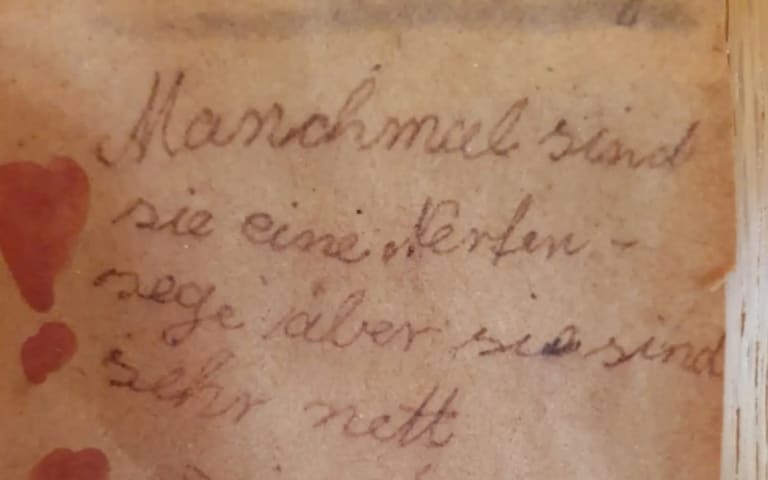 Manchmal sind
sie eine Nerfen-
sege aber sie sind
sehr nett